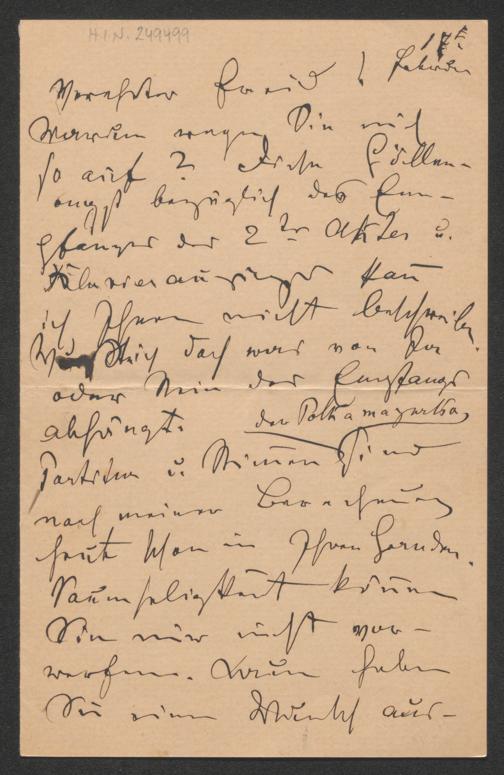 H.I.N. 249499
17t
Februar
Verehrter Freund!
Warum regen Sie mich
so auf? Diese Höllen-
angst bezüglich des Em-
pfanges des 2ten Aktes u.
Klavierauszuges kann
ich Ihnen nicht beschreiben.
doch was von
oder Nein des Empfangs
abhängt. der Polka mazurka,
Partitur u. Stimmen sind
nach meiner Berechnung
heute schon in Ihren Händen.
Saumseligkeit können
Sie mir nicht vor-
werfen. Kaum haben
Sie einen Wunsch aus-